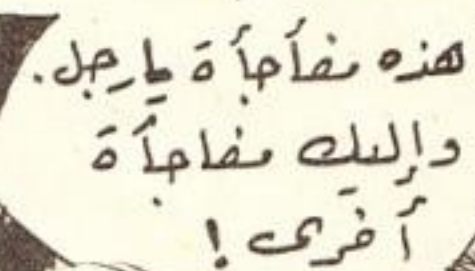 هذه مفأجأة يا رجل.
وإليك مفاجأة
أخرى !